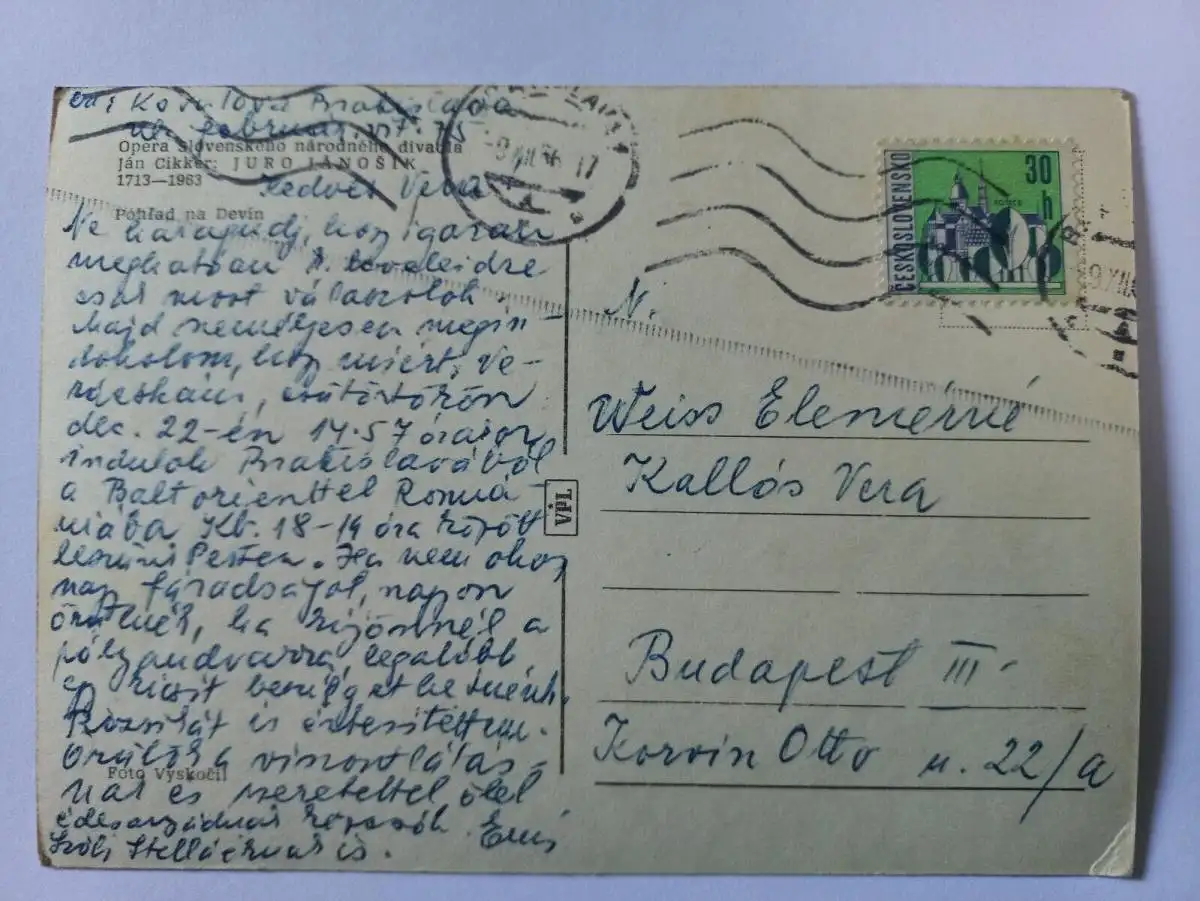 Bratislava
Opera Slovenského národného divadla
Ján Cikker: JURO JÁNOŠÍK
1713—1963
Kedves Vera
Pohľad na Devín
Ne haragudj, hogy igazán
meghatóan k. leveleidre
csak most válaszolok.
Majd személyesen megin-
dokolom, hogy miért. Ve-
rácskám, csütörtökön
dec. 22-én 14.57 órakor
indulok Bratislavából
a Baltorienttel Romá-
niába Kb. 18-19 óra között
leszünk Pesten. Ha nem okoz
nagy fáradságot, nagyon
örülnék, ha kijönnél a
pályaudvarra, legalább
egy kicsit beszélgethetnénk.
Rózsikát is értesítettem.
Örülök a viszontlátás-
Foto Vyskočil
nak és szeretettel ölel
édesanyádnak kezcsók Emi
Stellácinak is.
9 XII 66 17
ČESKOSLOVENSKO
30 h
N.
Weiss Elemérné
Kallós Vera
VPL
Budapest III.
Korvin Ottó u. 22/a